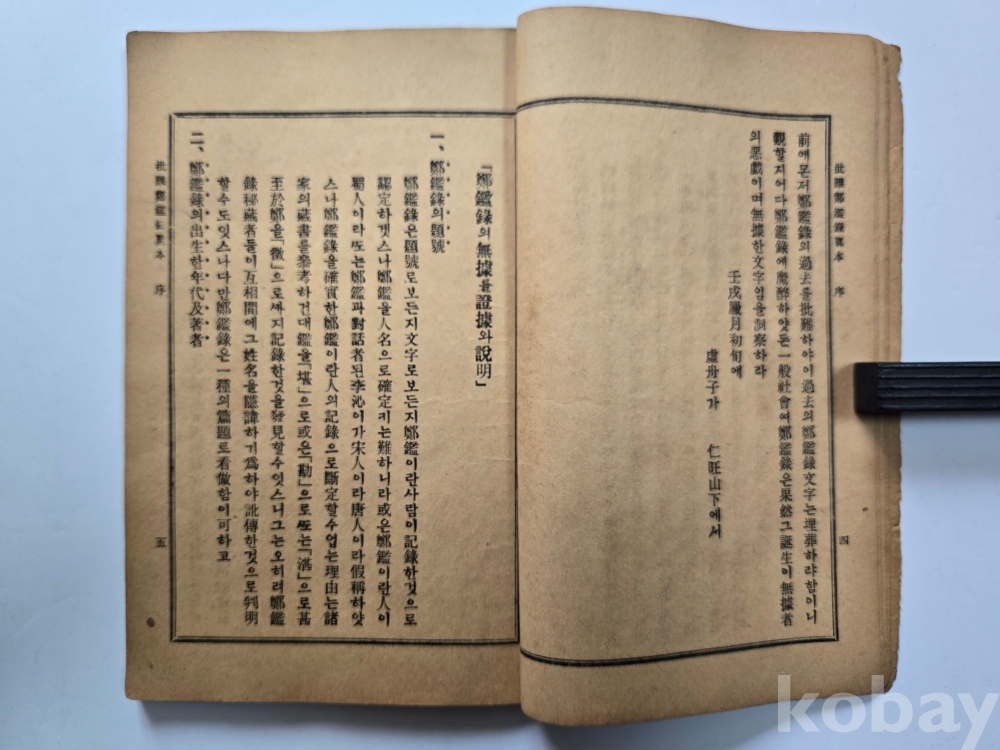 批難鄭鑑錄眞本 序
四
前에몬저鄭鑑錄의過去를批難하야이過去의鄭鑑錄文字는埋葬하랴함이니
觀할지어다鄭鑑錄에魔醉하얏든一般社會여鄭鑑錄은果然그誕生이無據者
의惡戱이며無據한文字임을洞察하라
壬戌臘月初旬에
虛舟子가 仁旺山下에서
「鄭鑑錄의無據를證據와說明」
一、鄭鑑錄의題號
鄭鑑錄은題號로보든지文字로보든지鄭鑑이란사람이記錄한것으로
認定하겟스나鄭鑑을人名으로確定키는難하니라或은鄭鑑이란人이
蜀人이라또는鄭鑑과對話者된李沁이가宋人이라唐人이라假稱하얏
스나鄭鑑錄을確實한鄭鑑이란人의記錄으로斷定할수업는理由는諸
家의藏書를參考하건대鑑을「堪」으로或은「勘」으로또는「湛」으로甚
至於鄭을「徵」으로까지記錄한것을發見할수잇스니그는오히려鄭鑑
錄秘藏者들이互相間에그姓名을隱諱하기爲하야訛傳한것으로判明
할수도잇스나다만鄭鑑錄은一種의篇題로看做함이可하고
二、鄭鑑錄의出生한年代及著者
批難鄭鑑錄眞本 序
五
kobay